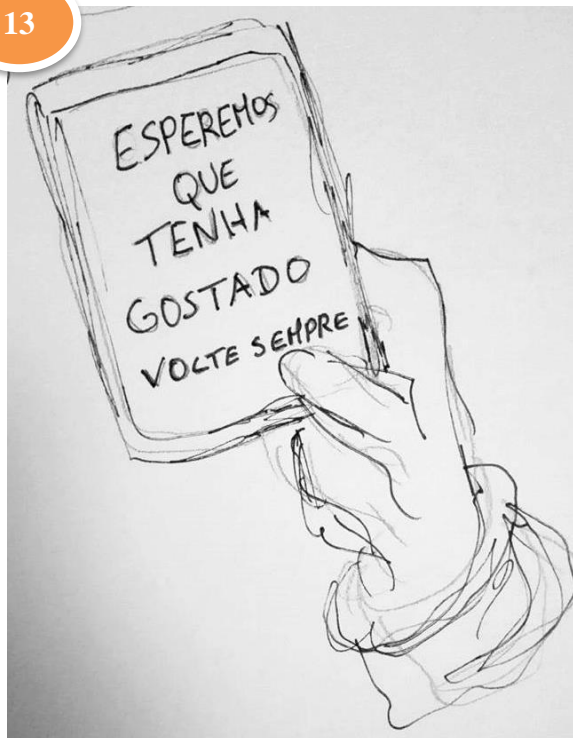 13
ESPEREMOS
QUE
TENHA
GOSTADO
VOLTE SEMPRE